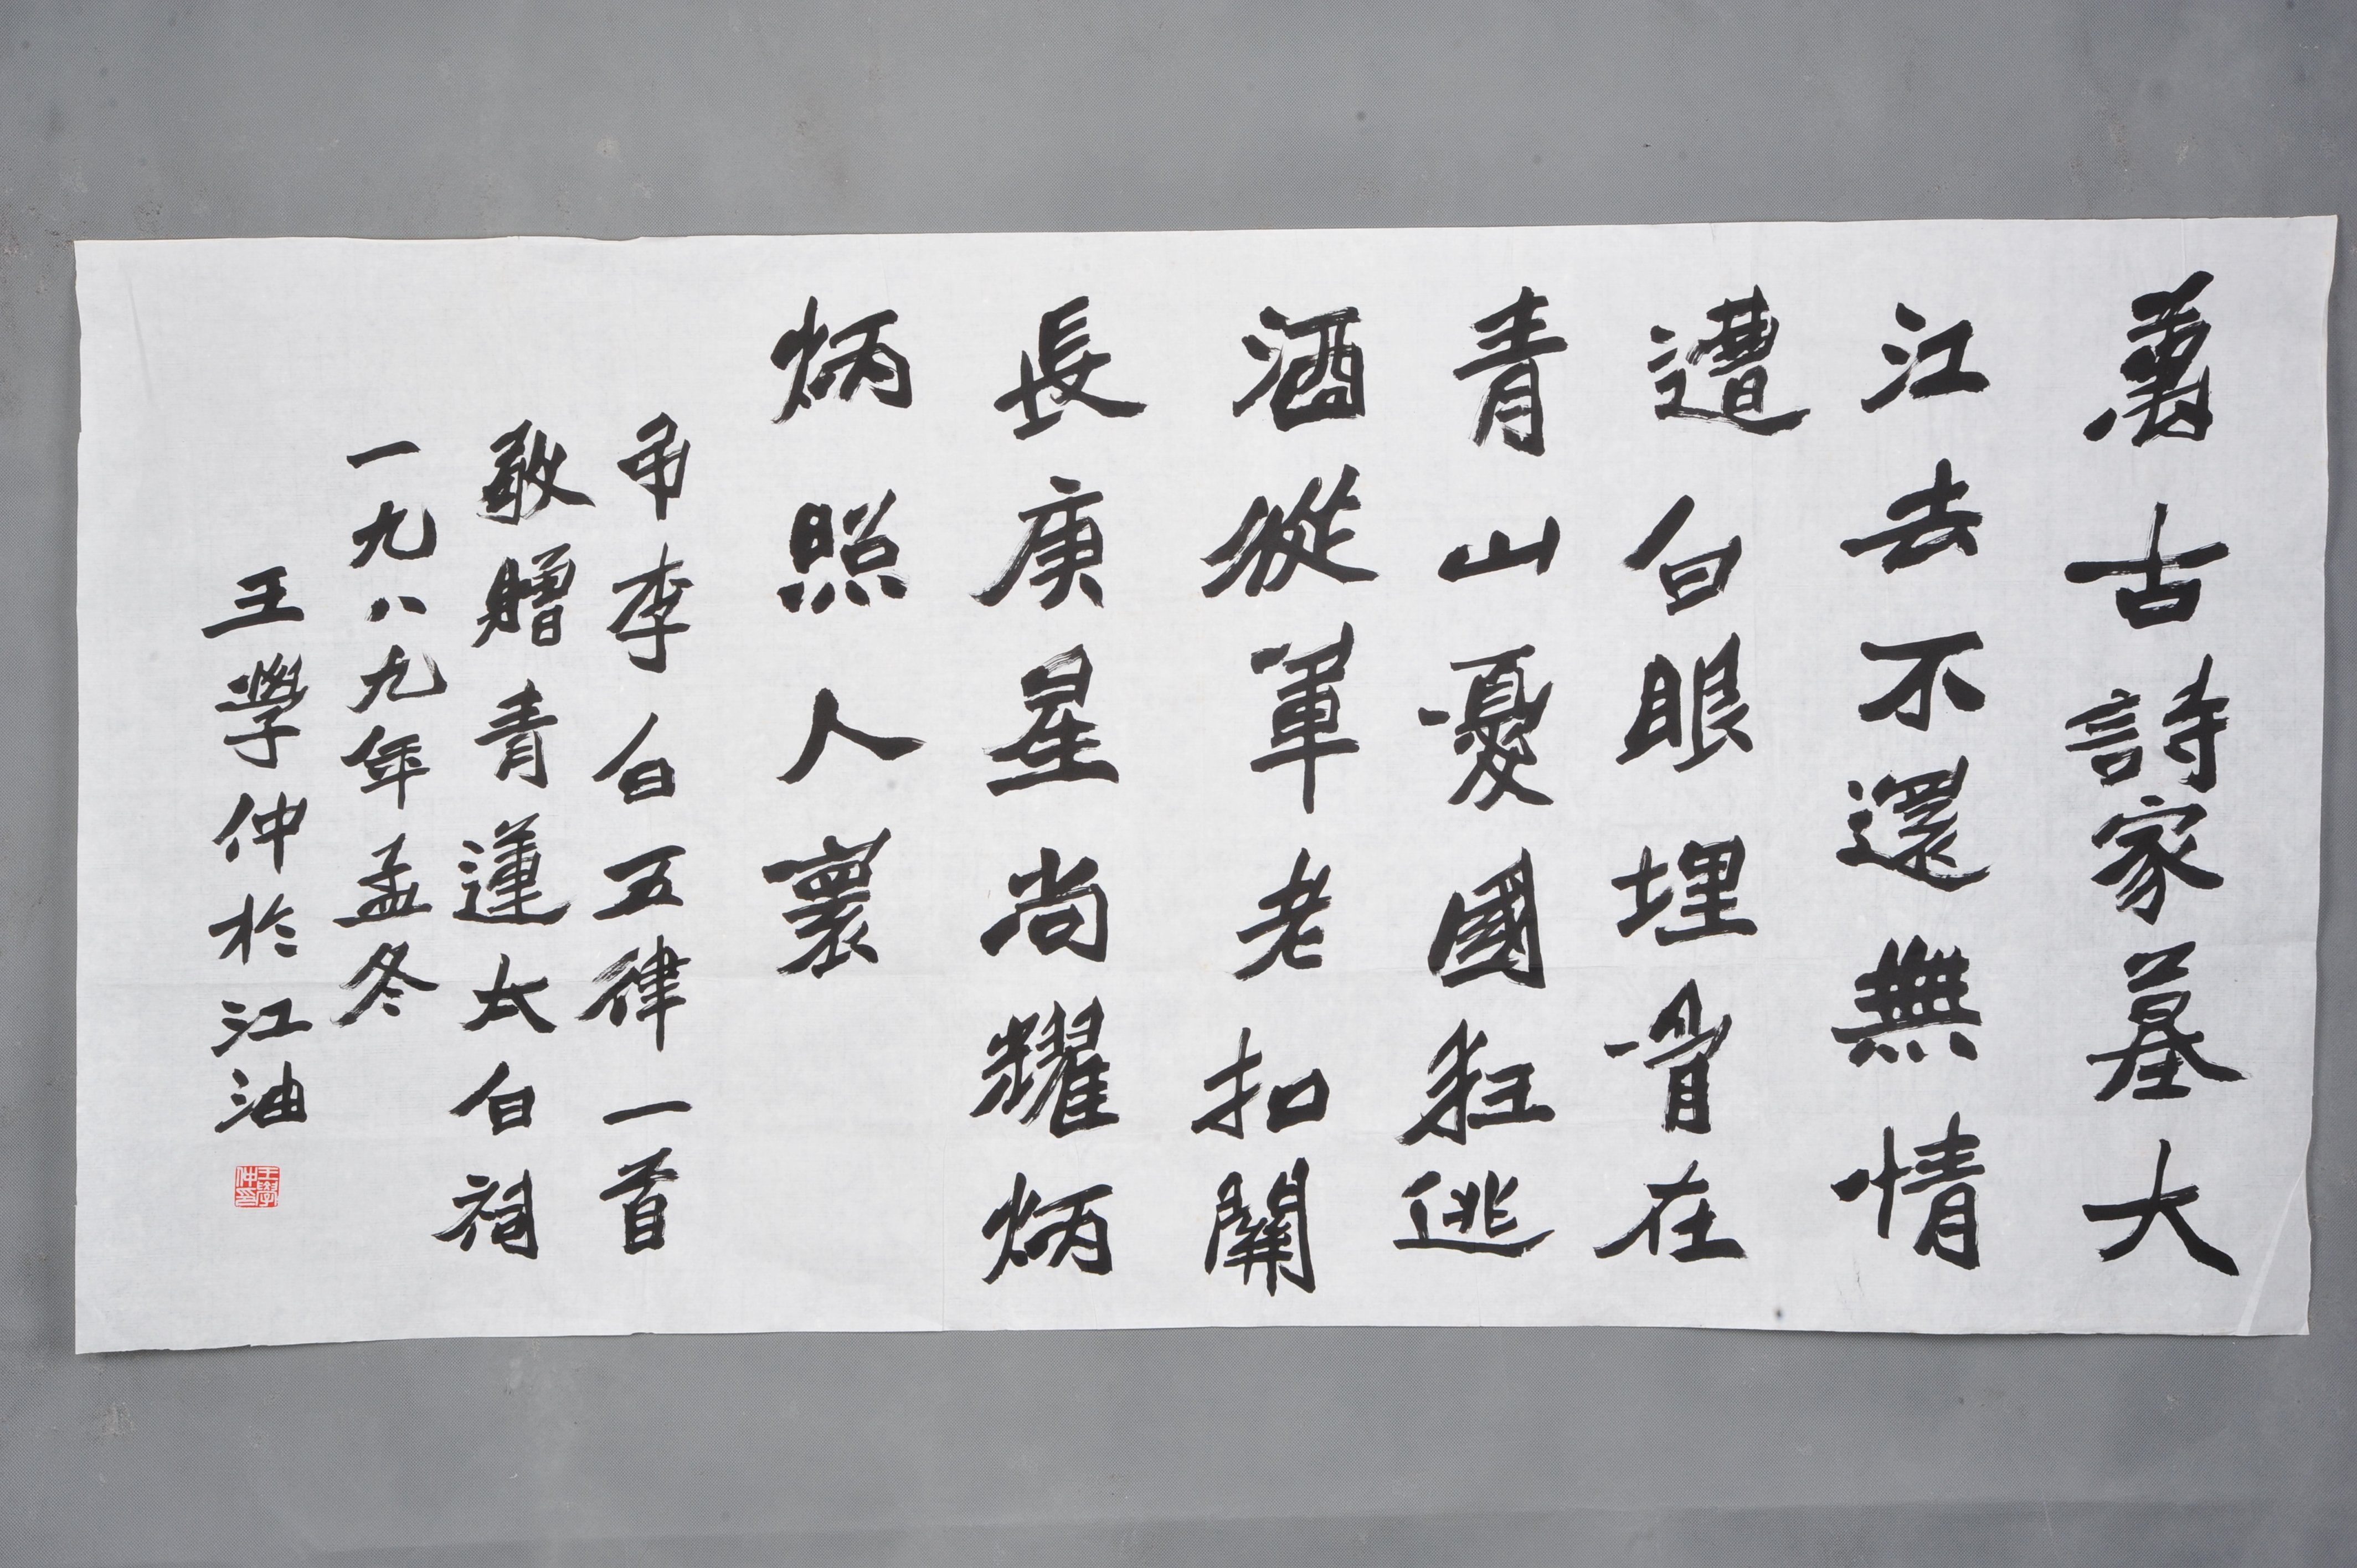 萬古詩家墓大
江去不還無情
遭白眼埋骨在
青山憂國狂逃
酒從軍老扣關
長庚星尚耀炳
炳照人寰
弔李白五律一首
敬贈青蓮太白祠
一九八九年孟冬
王學仲於江油
王學仲印